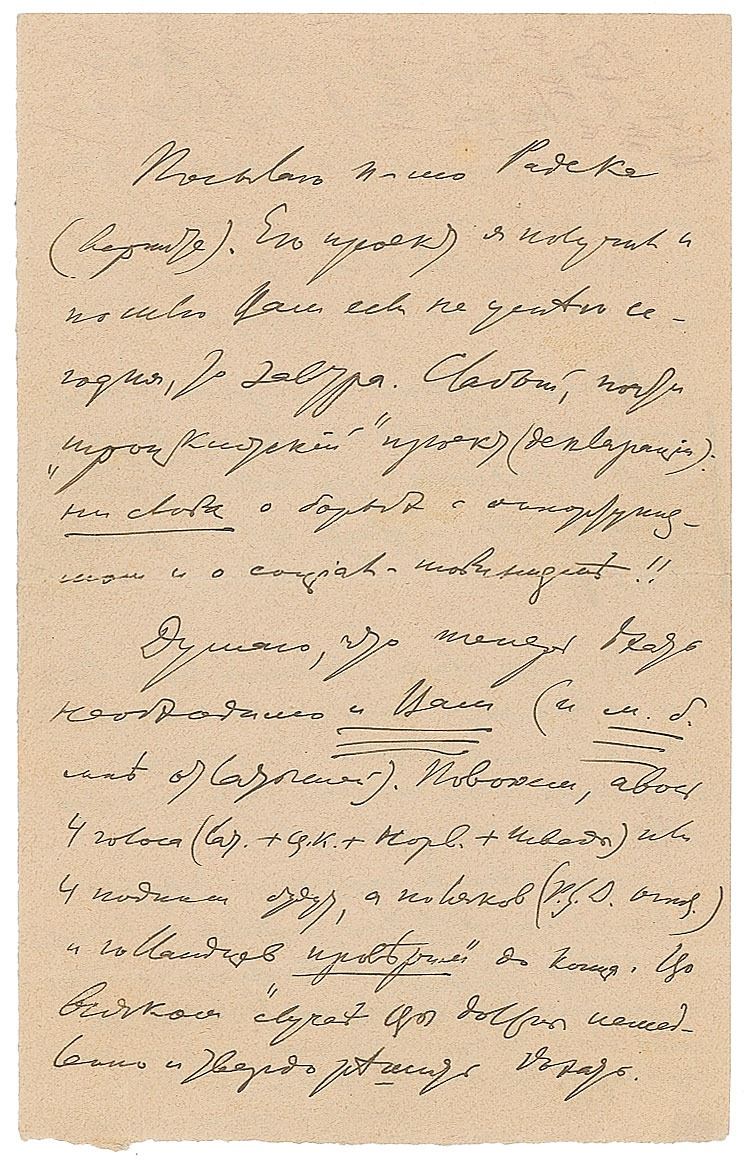 Посылаю п-мо Радека
(верните). Его проект я получил и
пошлю Вам если не успею се-
годня, то завтра. Слабый, почти
„троцкистский" проект (декларация):
ни слова о борьбе с оппортуниз-
мом и о социал-шовинизмѣ!!
Думаю, что теперь ѣхать
необходимо и Вам (и м. б.
мнѣ от латышей). Положим, авось
4 голоса (лат. + Ц.К. + Норв. + шведы) или
4 подписи будут, а поляков (P.S.D. оппоз.)
и голландцев провѣрим до конца. Во
всяком случаѣ Вы должны немед-
ленно и твердо рѣшить ѣхать.